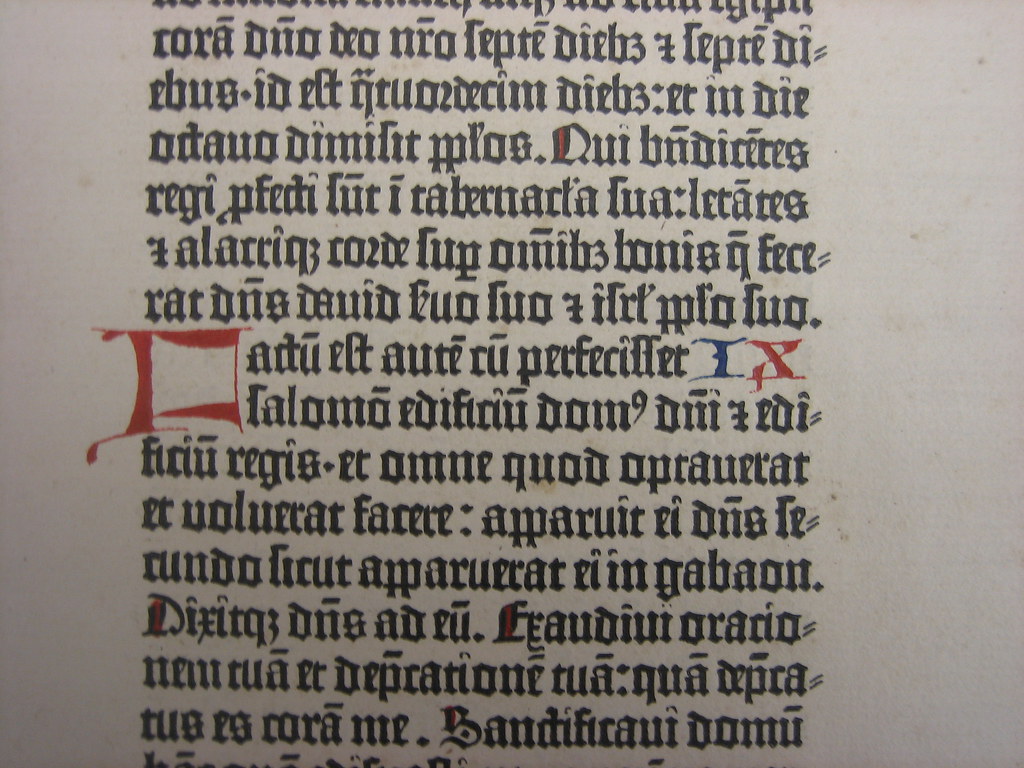 corā dn̄o deo nr̄o septē diebꝫ ⁊ septē di⸗
ebus·id est q̄tuordecim diebꝫ:et in die
octauo dimisit pp̄los. Qui bn̄dicētes
regi ꝓfecti sūt ī tabernacl̓a sua:letātes
⁊ alacriqꝫ corde suꝑ om̄ibꝫ bonis q̄ fece⸗
rat dn̄s dauid ẜuo suo ⁊ isrl̓ pp̄lo suo.
Factū est autē cū perfecisset IX
salomō edificiū domꝰ dn̄i ⁊ edi⸗
ficiū regis·et omne quod optauerat
et voluerat facere: apparuit ei dn̄s se⸗
cundo sicut apparuerat ei in gabaon.
Dixitqꝫ dn̄s ad eū. Exaudiui oratio⸗
nem tuā et dep̄cationē tuā:quā dep̄ca⸗
tus es corā me. Sanctificaui domū